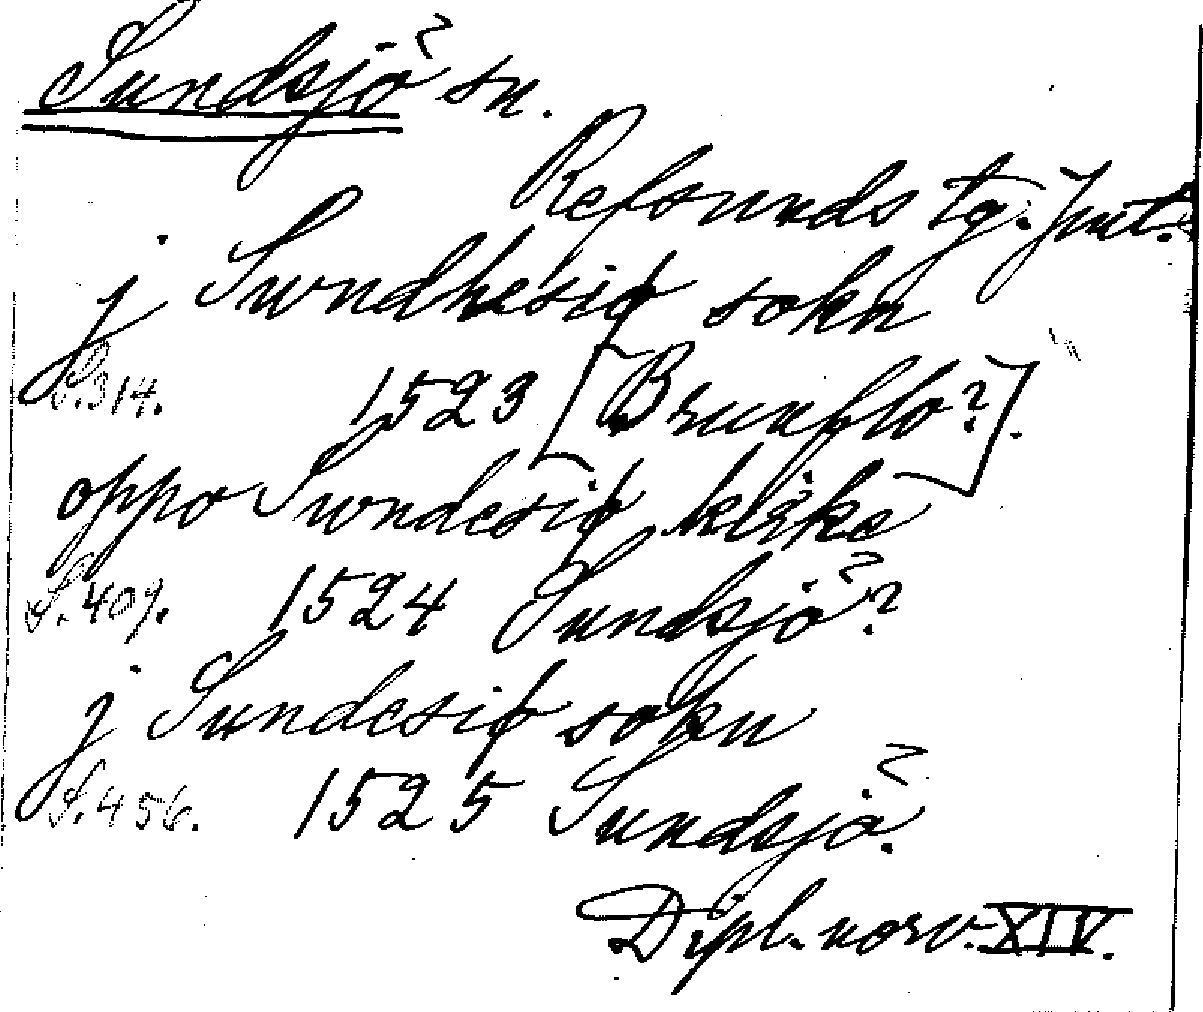 Sundsjö sn.
Refsunds tg. Jmt.
j Swndhesiø sokn
S.314. 1523 [Brunflo?].
oppo Swndesiø kirke
S.409. 1524 Sundsjö?
j Sundesiø sokn
S.456. 1525 Sundsjö.
Dipl. norv. XIV.